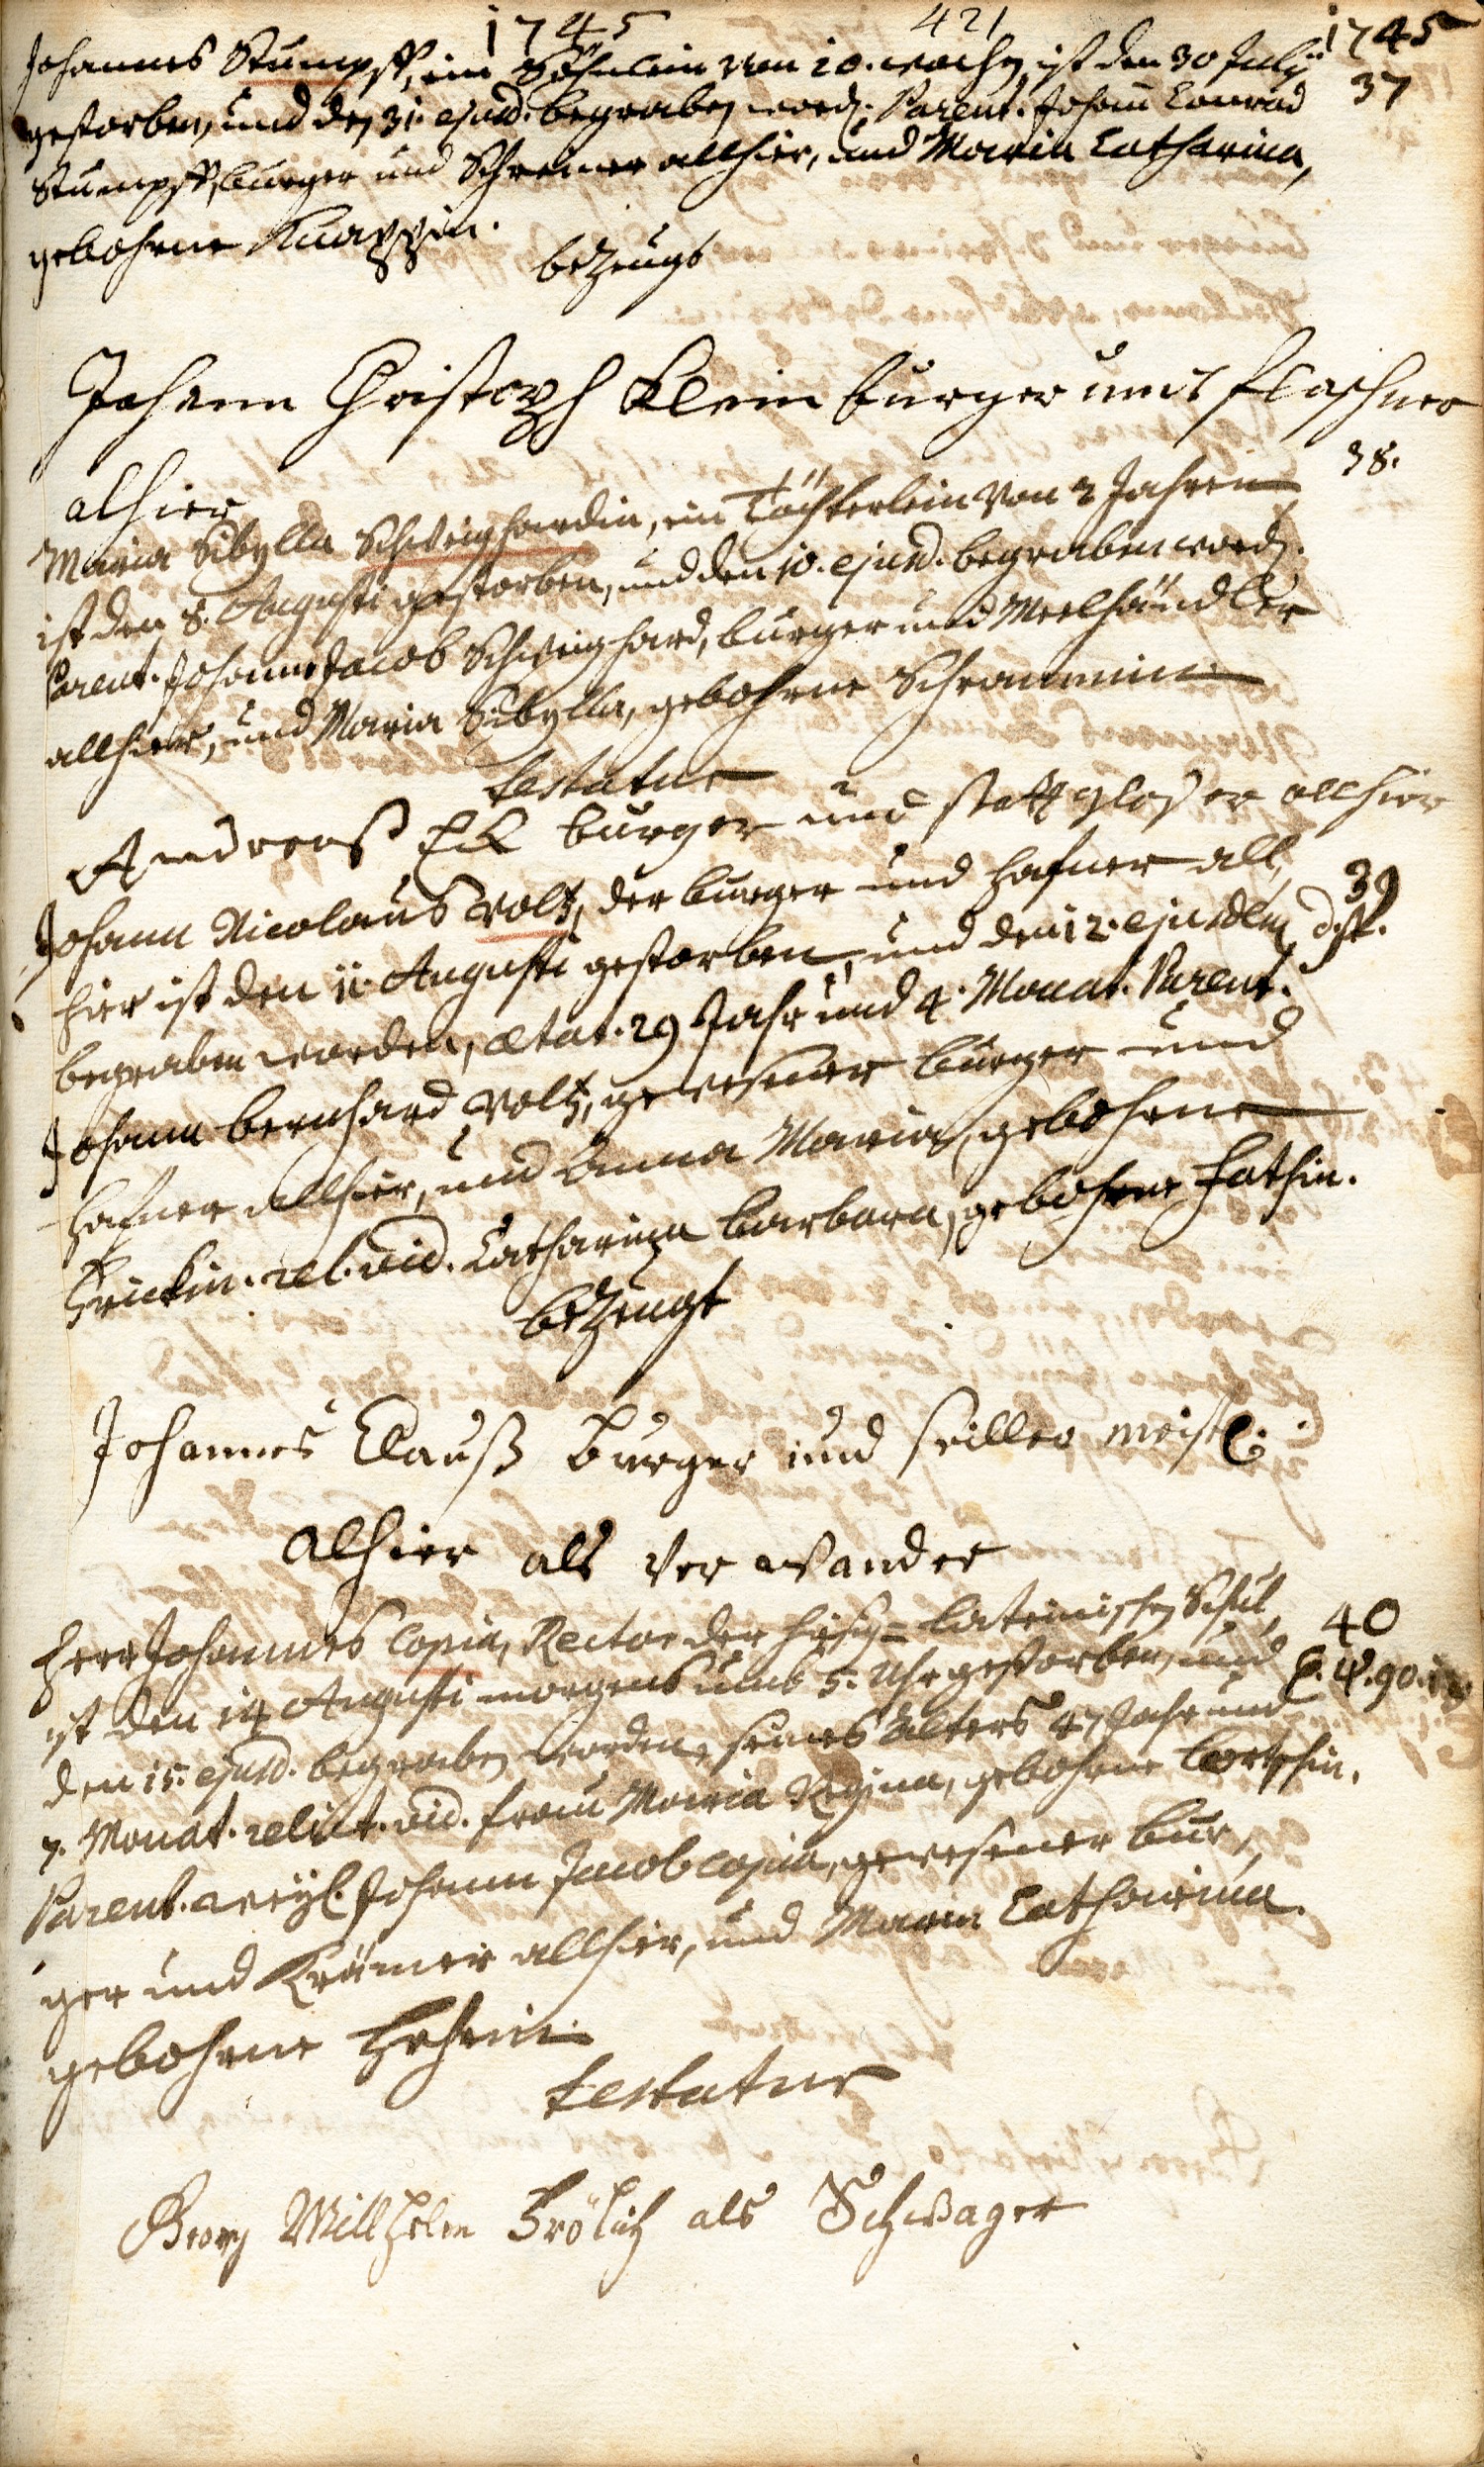 1745 421 1745
Johannes Stumpff, ein Söhnlein von 20. wochen, ist den 30 Julÿ 37
gestorben, und den 31. ejusd. begraben word. Parent. Johann Conrad
Stumpff, burger und Schreiner allhier, und Maria Catharina,
gebohrne Knappin.
bezeugt
Johann Christoph Klein burger und flaschner
alhier 38.
Maria Sibylla Schweighardin, ein Töchterlein von 2 Jahren
ist den 8. Augusti gestorben, und den 10. ejusd. begraben word.
Parent. Johann Jacob Schweighard, burger und Meelhändler
allhier, und Maria Sibylla, gebohrne Schrammin
testatur
Andreas Eck burger und allhier
Johann Nicolaus Voltz, der burger und Hafner all, 39
hier ist den 11. Augusti gestorben, und den 12. ejusdem
begraben worden, ætat. 29 Jahr und 4. Monat. Parent.
Johann bernhard Voltz, gewesener burger und
Hafner allhier, und Anna Maria, gebohrne
rel. vid. Catharina barbara, gebohrne
bezeugt
Johannes Clauß burger und seiller meist.
alhier als Ver wander
Herr Johannes Copia, Rector der hiesig= lateinischen Schul, 40
ist den 14 Augusti morgens umb 5. Uhr gestorben, und
den 15. ejusd. begraben worden, seines Alters 47 Jahr und
7. Monat. relict. vid. frau Maria Regina, gebohrne
Parent. weÿl. Johann Jacob Copia, gewesener bur,
ger und Krämer allhier, und Maria Catharina
gebohrne
testatur
Georg Willhelm Frölich als Schwager